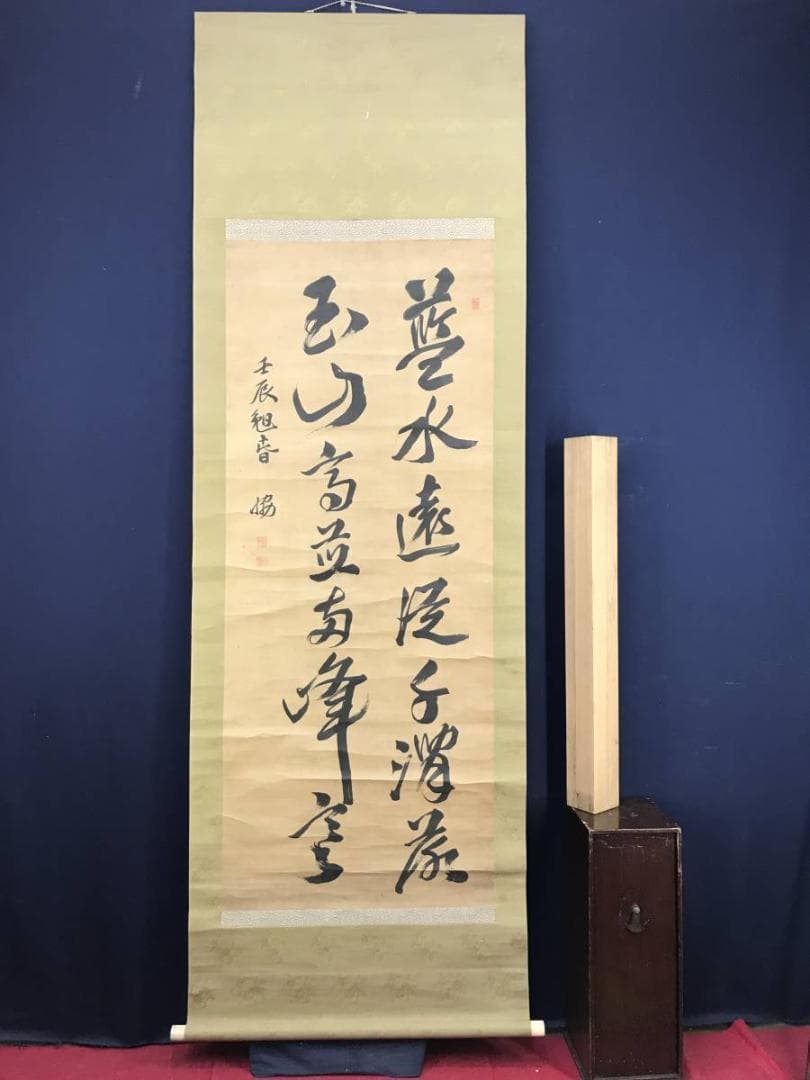 藍水遠從千澗落
玉山高並兩峰寒
壬辰春